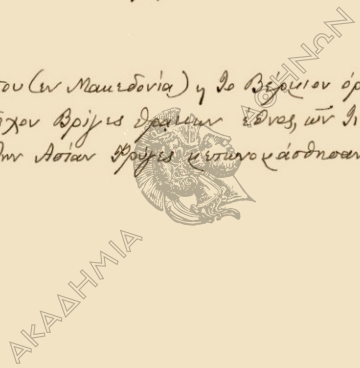 του (εν Μακεδονία) η το Βέρμιον όρ
είχον Βρίγες Θρακών έθνος, ών τι
την Ασίαν Φρύγες μετωνομάσθησαν
ΑΚΑΔΗΜΙΑ
ΑΘΗΝΩΝ